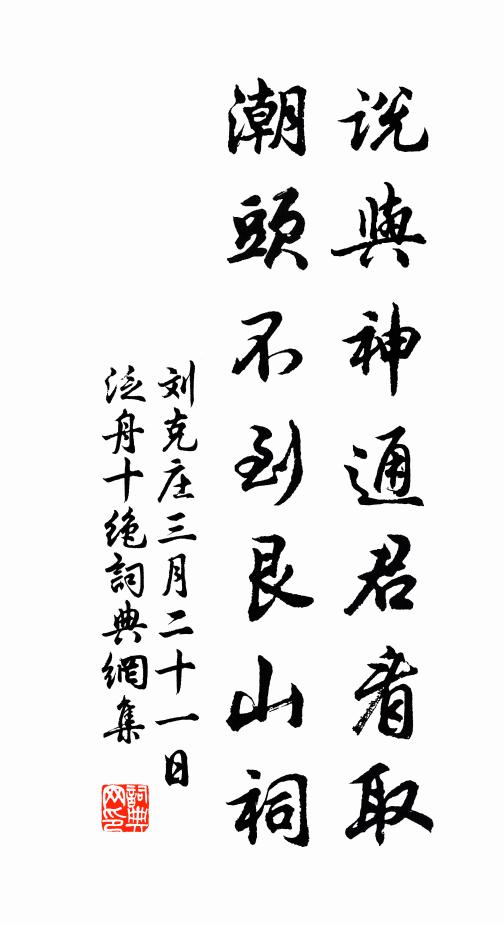 說與神通君看取
潮頭不到艮山祠
刘克庄三月二十一日
泛舟十绝詞典網集
詞典网印